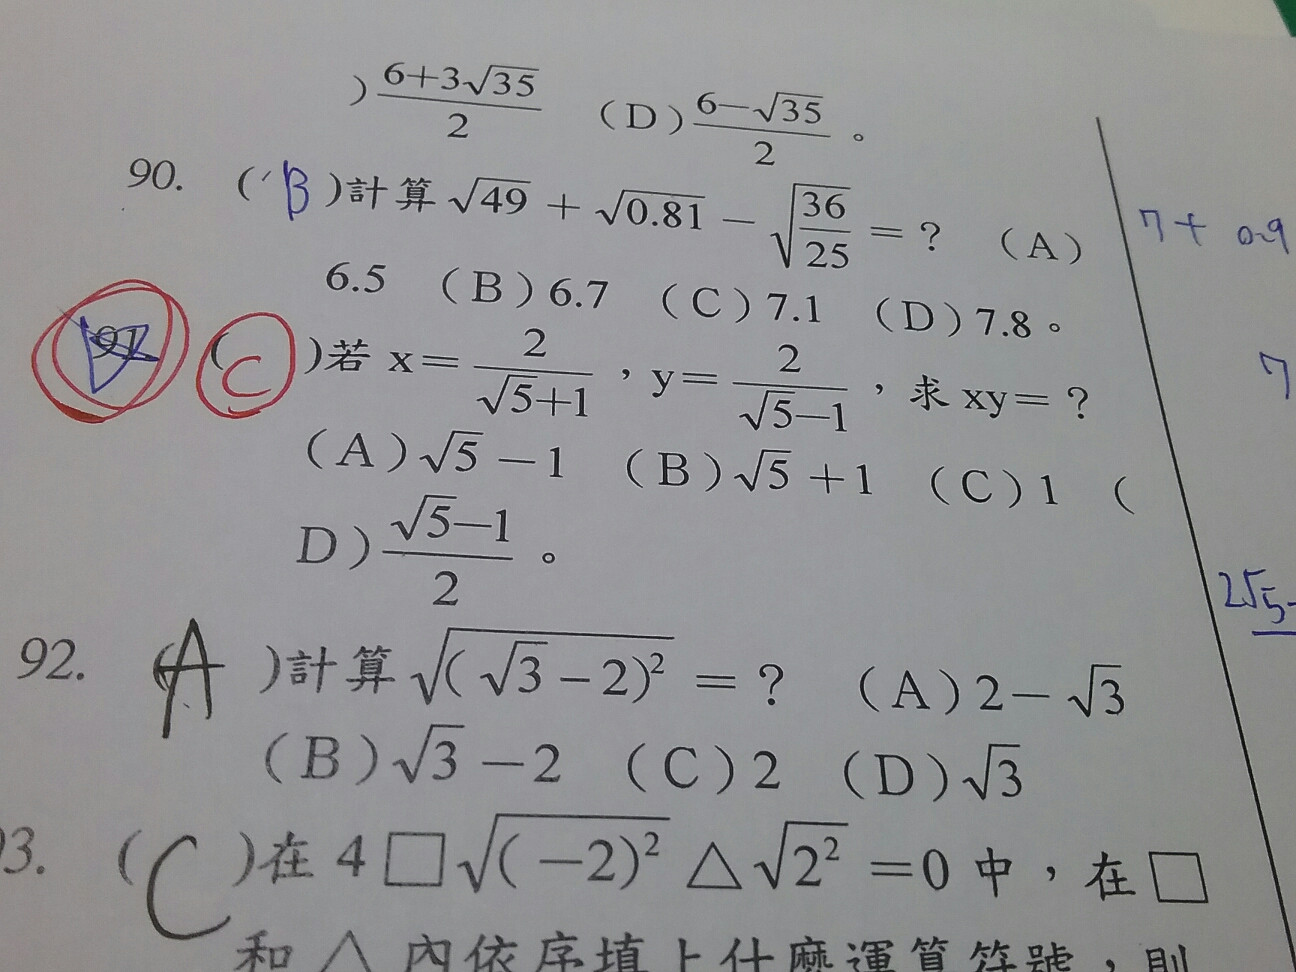 ) 6+3√35 / 2 (D) 6−√35 / 2 。
90. (B)計算 √49 + √0.81 − √(36/25) = ? (A)
7+ 0.9
6.5 (B) 6.7 (C) 7.1 (D) 7.8。
91. (C)若 x= 2 / √5+1 ,y= 2 / √5−1 ,求 xy= ?
7
(A) √5 −1 (B) √5 +1 (C) 1 (
D) √5−1 / 2 。
2√5-
92. (A)計算 √(√3−2)² = ? (A) 2−√3
(B) √3 −2 (C) 2 (D) √3
93. (C)在 4 □ √(−2)² △ √2² =0 中,在 □
和 △ 內依序填上什麼運算符號,則